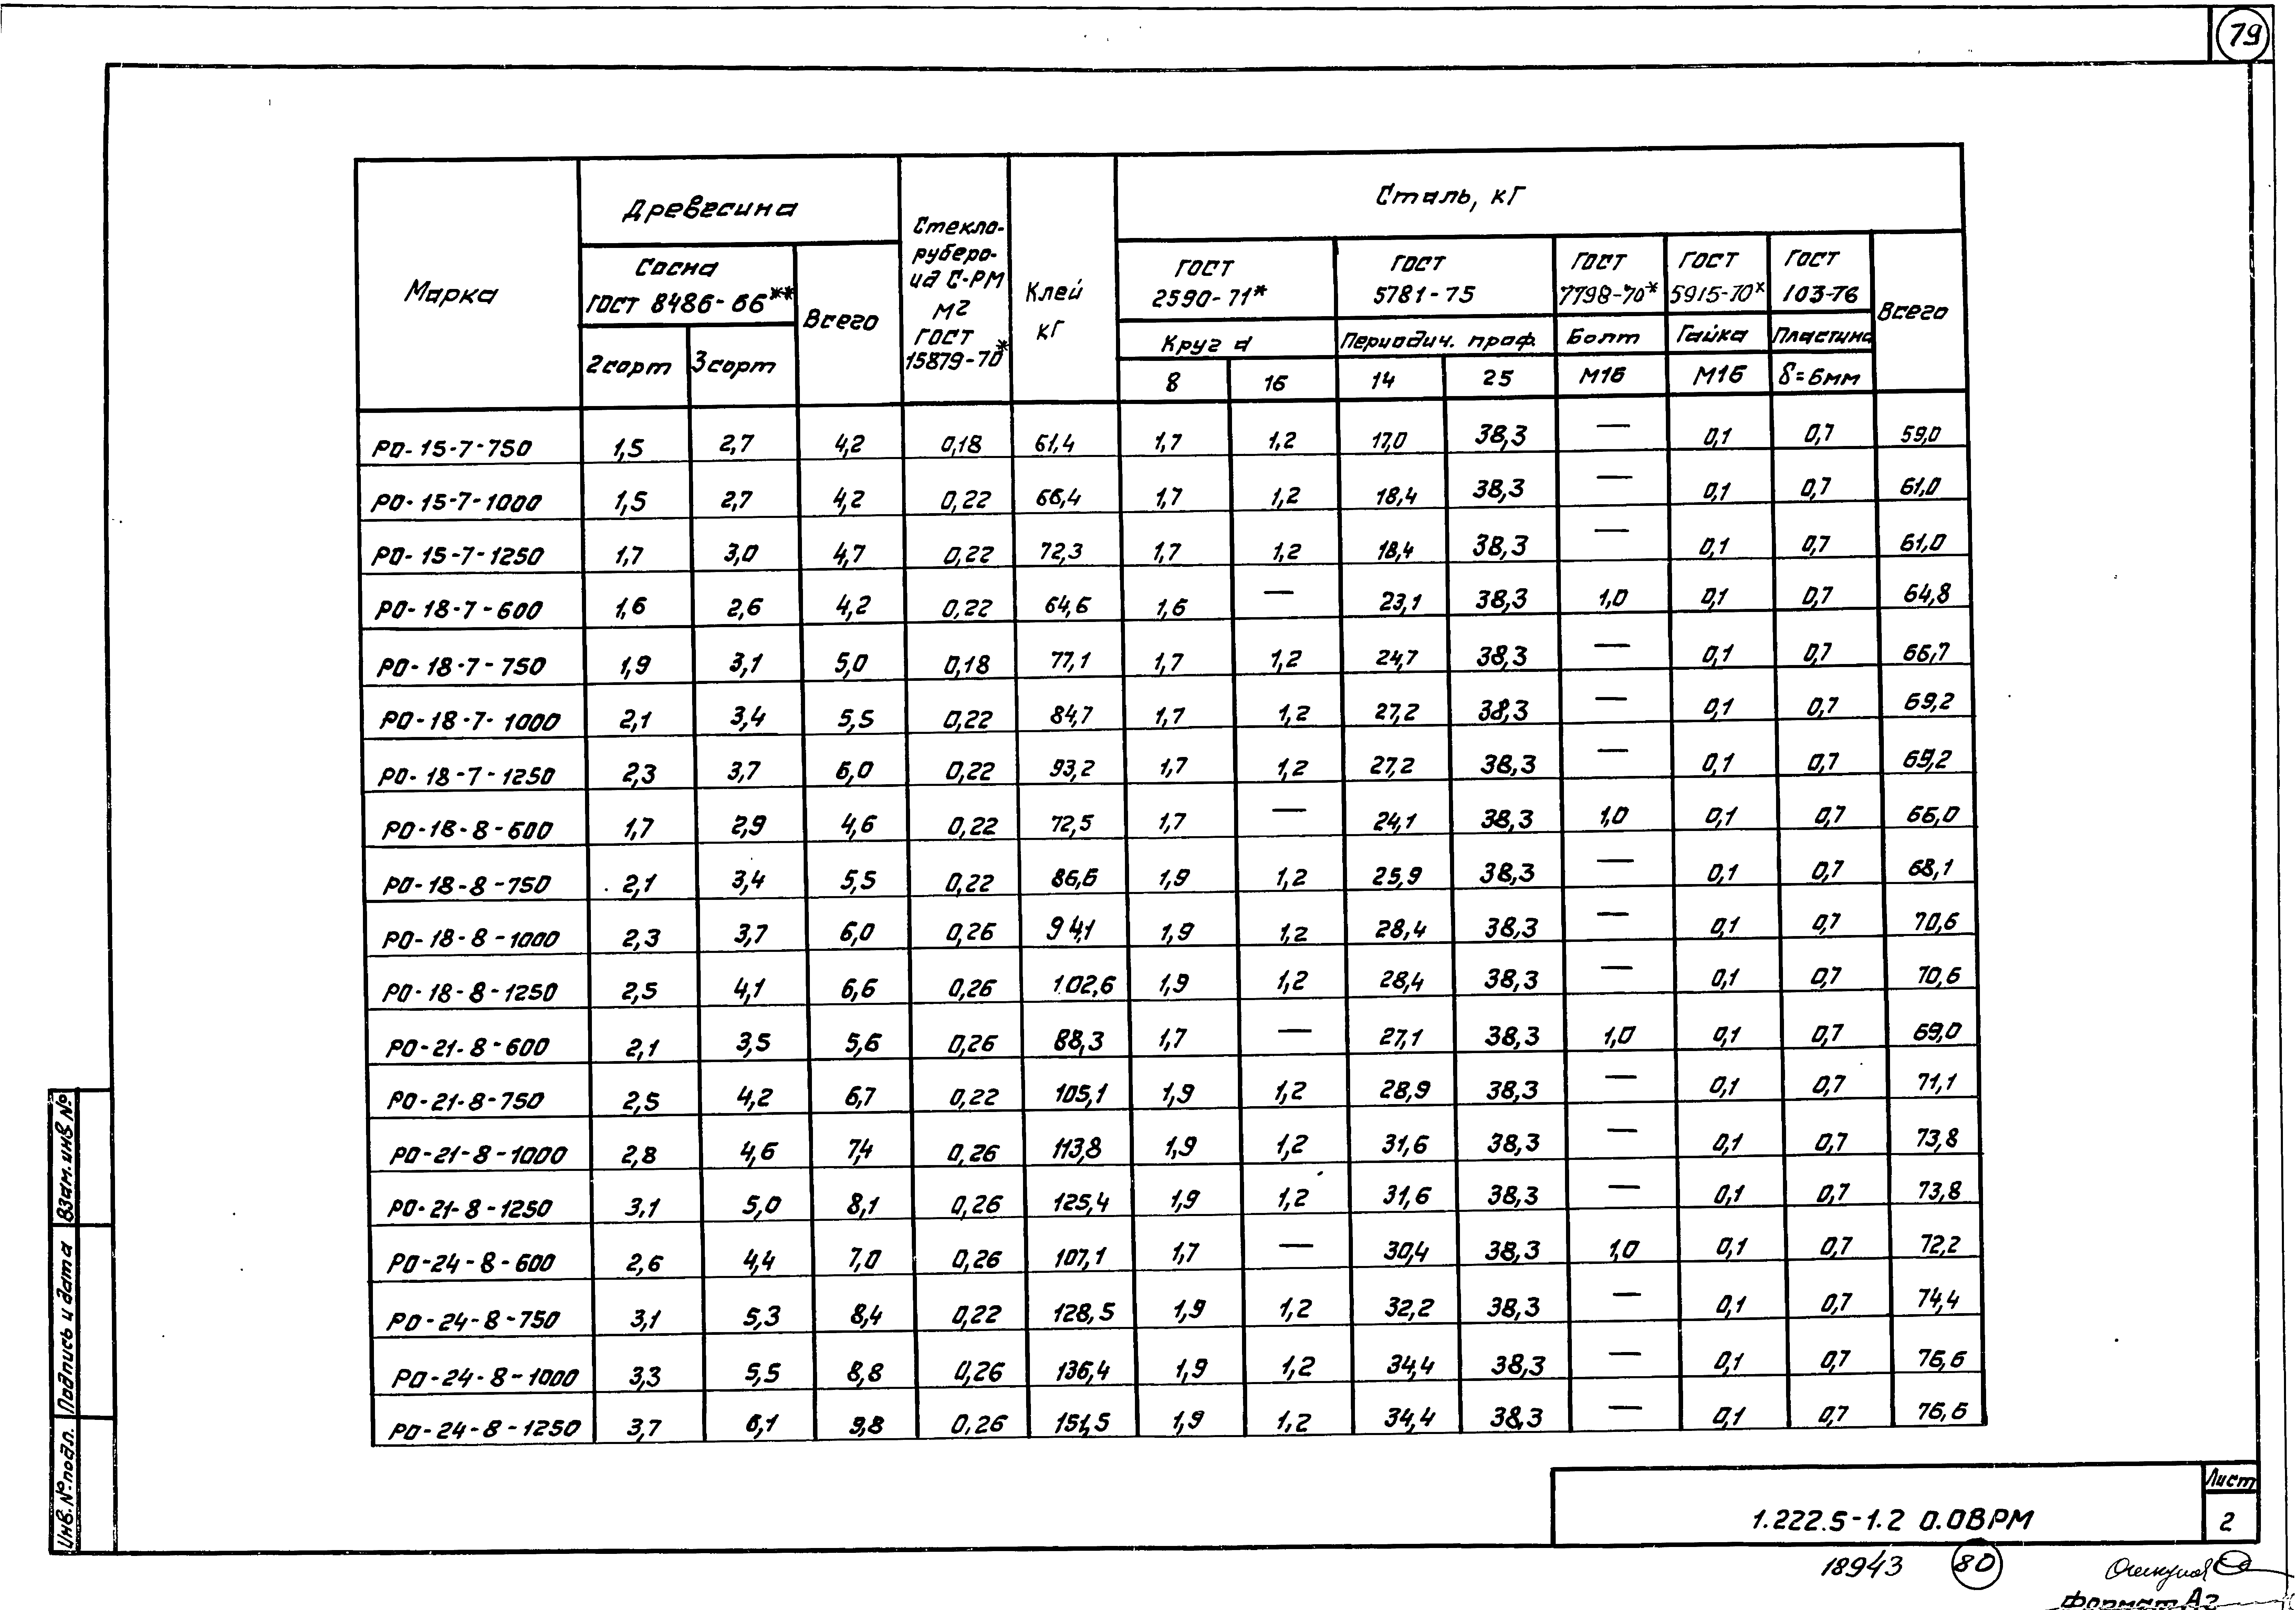 79
Марка
Древесина
Сосна
ГОСТ 8486-66**
2 сорт
3 сорт
Всего
Стекло-
руберо-
ид С-РМ
м2
ГОСТ
15879-70*
Клей
кг
Сталь, кг
ГОСТ
2590-71*
Круг d
8
16
ГОСТ
5781-75
Периодич. проф.
14
25
ГОСТ
7798-70*
Болт
М16
ГОСТ
5915-70*
Гайка
М16
ГОСТ
103-76
Пластина
δ=6мм
Всего
РО-15-7-750 1,5 2,7 4,2 0,18 61,4 1,7 1,2 17,0 38,3 — 0,1 0,7 59,0
РО-15-7-1000 1,5 2,7 4,2 0,22 66,4 1,7 1,2 18,4 38,3 — 0,1 0,7 61,0
РО-15-7-1250 1,7 3,0 4,7 0,22 72,3 1,7 1,2 18,4 38,3 — 0,1 0,7 61,0
РО-18-7-600 1,6 2,6 4,2 0,22 64,6 1,6 — 23,1 38,3 1,0 0,1 0,7 64,8
РО-18-7-750 1,9 3,1 5,0 0,18 77,1 1,7 1,2 24,7 38,3 — 0,1 0,7 66,7
РО-18-7-1000 2,1 3,4 5,5 0,22 84,7 1,7 1,2 27,2 38,3 — 0,1 0,7 69,2
РО-18-7-1250 2,3 3,7 6,0 0,22 93,2 1,7 1,2 27,2 38,3 — 0,1 0,7 69,2
РО-18-8-600 1,7 2,9 4,6 0,22 72,5 1,7 — 24,1 38,3 1,0 0,1 0,7 66,0
РО-18-8-750 2,1 3,4 5,5 0,22 86,6 1,9 1,2 25,9 38,3 — 0,1 0,7 68,1
РО-18-8-1000 2,3 3,7 6,0 0,26 94,1 1,9 1,2 28,4 38,3 — 0,1 0,7 70,6
РО-18-8-1250 2,5 4,1 6,6 0,26 102,6 1,9 1,2 28,4 38,3 — 0,1 0,7 70,6
РО-21-8-600 2,1 3,5 5,6 0,26 88,3 1,7 — 27,1 38,3 1,0 0,1 0,7 69,0
РО-21-8-750 2,5 4,2 6,7 0,22 105,1 1,9 1,2 28,9 38,3 — 0,1 0,7 71,1
РО-21-8-1000 2,8 4,6 7,4 0,26 113,8 1,9 1,2 31,6 38,3 — 0,1 0,7 73,8
РО-21-8-1250 3,1 5,0 8,1 0,26 125,4 1,9 1,2 31,6 38,3 — 0,1 0,7 73,8
РО-24-8-600 2,6 4,4 7,0 0,26 107,1 1,7 — 30,4 38,3 1,0 0,1 0,7 72,2
РО-24-8-750 3,1 5,3 8,4 0,22 128,5 1,9 1,2 32,2 38,3 — 0,1 0,7 74,4
РО-24-8-1000 3,3 5,5 8,8 0,26 136,4 1,9 1,2 34,4 38,3 — 0,1 0,7 76,6
РО-24-8-1250 3,7 6,1 9,8 0,26 151,5 1,9 1,2 34,4 38,3 — 0,1 0,7 76,6
Взам. инв №
Подпись и дата
Инв. № подл.
1.222.5-1.2 0.0ВРМ
Лист
2
18943 80
Формат А2